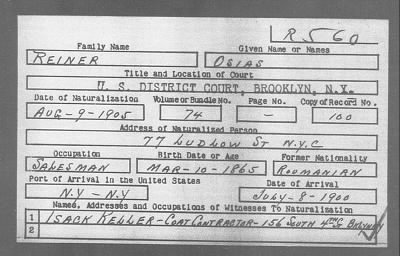 R560
Family Name Given Name or Names
REINER OSIAS
Title and Location of Court
U. S. DISTRICT COURT, BROOKLYN, N.Y.
Date of Naturalization Volume or Bundle No. Page No. Copy of Record No.
AUG-9-1905 74 - 100
Address of Naturalized Person
77 LUDLOW ST N.Y.C
Occupation Birth Date or Age Former Nationality
SALESMAN MAR-10-1865 ROUMANIAN
Port of Arrival in the United States Date of Arrival
N.Y-N.Y JULY-8-1900
Names, Addresses and Occupations of Witnesses To Naturalization
1 ISACK KELLER-COAT CONTRACTOR-156 SOUTH 4TH ST BKLYN NY
2